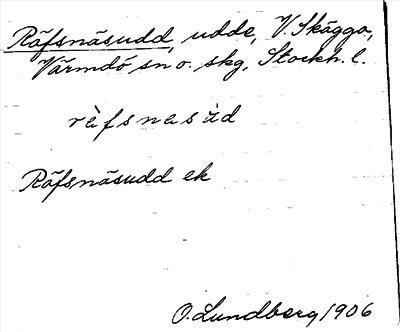 Räfsnäsudd, udde, V. Skägga,
Värmdö sn o. skg, Stockh. l.
räfsnasùd
Räfsnäsudd ek
O. Lundberg 1906